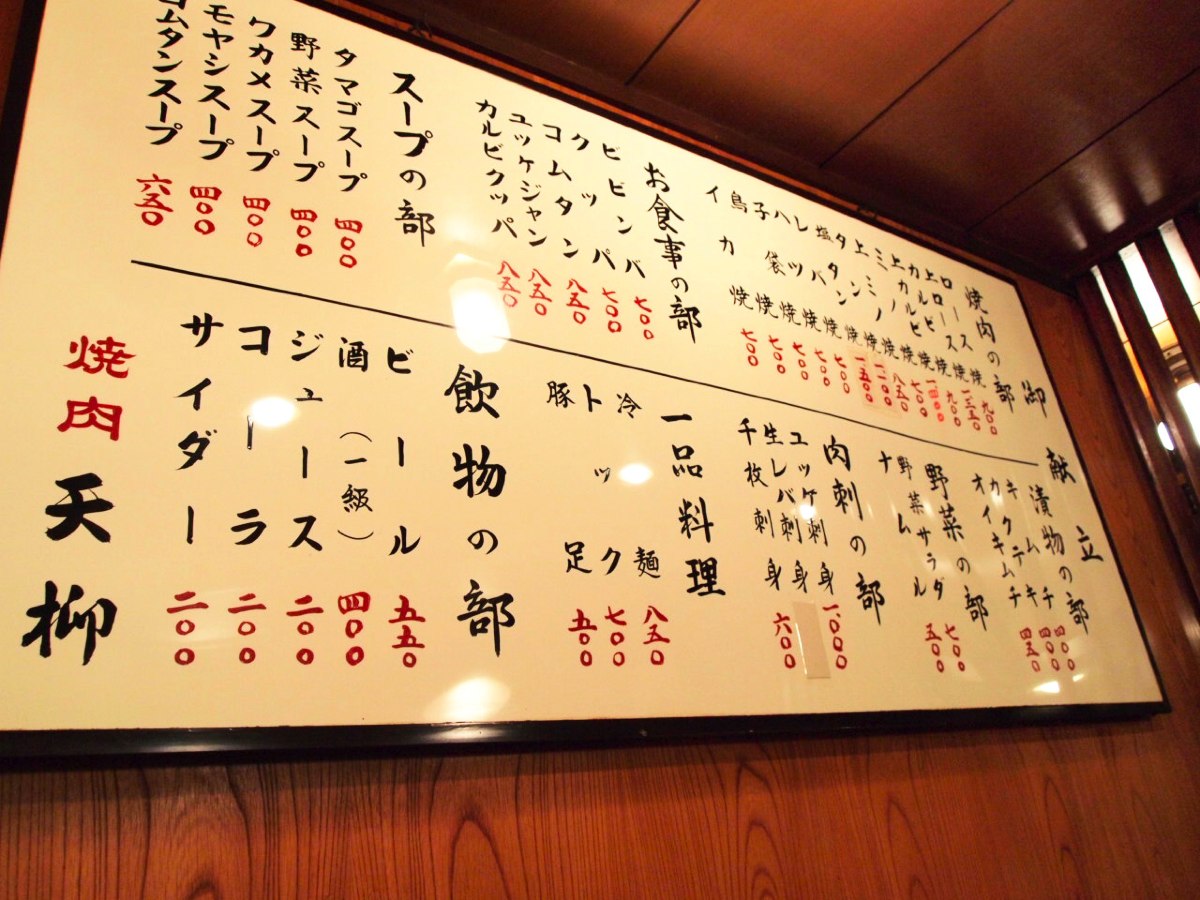 御献立
焼肉の部
ロース焼 九〇〇
上ロース焼 一三五〇
カルビ焼 九〇〇
上カルビ焼
ミノ焼 七〇〇
上ミノ焼 八五〇
タン焼
塩タン焼 一五〇〇
レバ焼 七〇〇
ハツ焼 七〇〇
子袋焼 七〇〇
鳥焼 七〇〇
イカ焼 七〇〇
お食事の部
ビビンバ 七〇〇
クッパ 七〇〇
コムタン 八五〇
ユッケジャン 八五〇
カルビクッパ 八五〇
スープの部
タマゴスープ 四〇〇
野菜スープ 四〇〇
ワカメスープ 四〇〇
モヤシスープ 四〇〇
コムタンスープ 六五〇
漬物の部
キムチ 四〇〇
カクテキ 四〇〇
オイキムチ 四五〇
野菜の部
野菜サラダ 七〇〇
ナムル 五〇〇
肉刺の部
ユッケ刺身 一、〇〇〇
生レバ刺身
千枚刺身 六〇〇
一品料理
冷麺 八五〇
トック 七〇〇
豚足 五〇〇
飲物の部
ビール 五五〇
酒(一級) 四〇〇
ジュース 二〇〇
コーラ 二〇〇
サイダー 二〇〇
焼肉 天柳